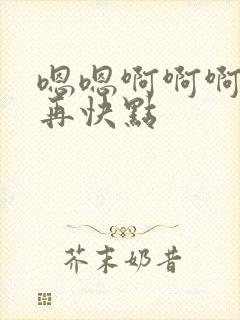 嗯嗯啊啊啊
再快點
芥末奶昔